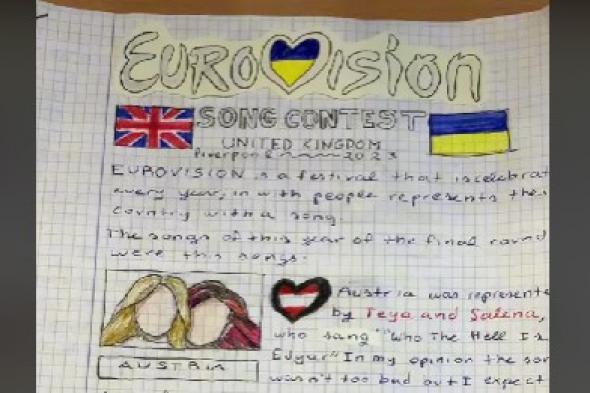 EUROVISION
SONG CONTEST
UNITED KINGDOM
Liverpool 2023
EUROVISION is a festival that is celebrat
every year, in with people represents thei
country with a song.
The songs of this year of the final round
were this songs.
Austria was represente
by Teya and Salena,
who sang "Who The Hell Is
Edgar" In my opinion the son
wasn't too bad but I expect
AUSTRIA